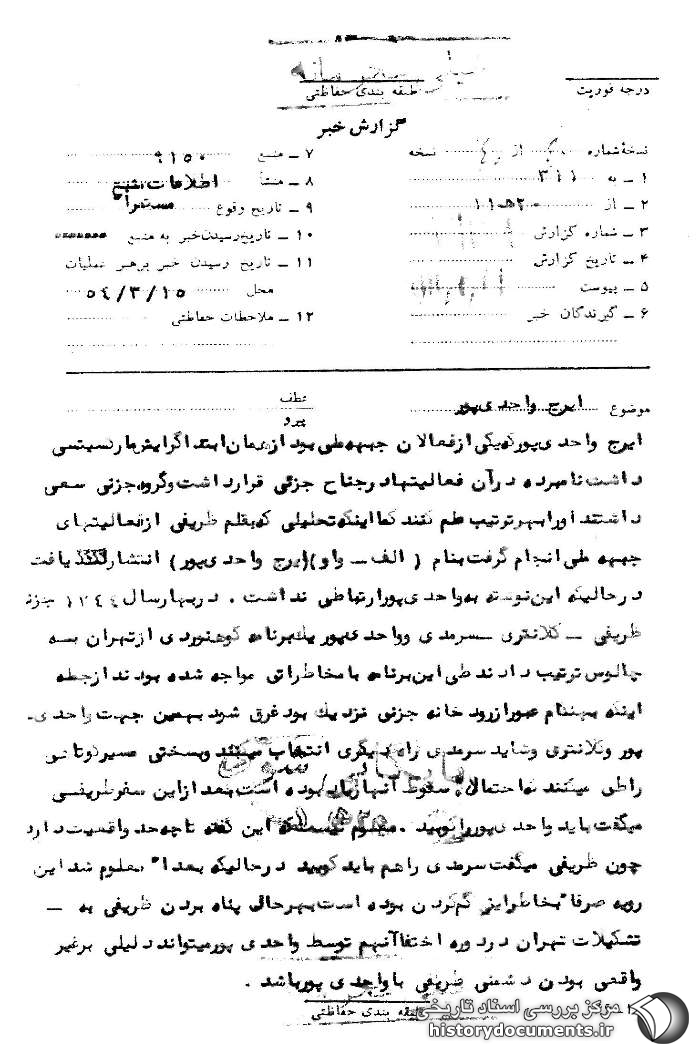 خیلی محرمانه
درجه فوریت
طبقه بندی حفاظتی
گزارش خبر
نسخهٔ شماره از نسخه
۱ ـ به ۳۱۱
۲ ـ از ۱۱ه۲۰
۳ ـ شماره گزارش
۴ ـ تاریخ گزارش
۵ ـ پیوست
۶ ـ گیرندگان خبر
۷ ـ منبع ۹۱۵۰
۸ ـ منشأ اطلاعات منبع
۹ ـ تاریخ وقوع
۱۰ ـ تاریخ رسیدن خبر به منبع
۱۱ ـ تاریخ رسیدن خبر برهبر عملیات
محل ۵۴/۳/۱۵
۱۲ ـ ملاحظات حفاظتی
موضوع ایرج واحدی پور
عطف
پیرو
ایرج واحدی پورکه یکی ازفعالان جبهه ملی بود ازهمان ابتدا گرایش مارکسیستی
داشت نامبرده درآن فعالیتها درجناح جزنی قرارداشت وگروه جزنی سعی
داشتند اورابهرترتیب علم کنند کما اینکه تحلیلی که بقلم ظریفی ازفعالیتهای
جبهه ملی انجام گرفت بنام ( الف ـ واو )(ایرج واحدی پور) انتشار یافت
درحالیکه این نوشته به واحدی پورارتباطی نداشت . دربهارسال ۱۳۴۴ جزنی
ظریفی ـ کلانتری ـ سرمدی و واحدی پور یک برنامه کوهنوردی ازتهران به
چالوس ترتیب دادند طی این برنامه بامخاطراتی مواجه شده بودند ازجمله
اینکه بهنگام عبورازرودخانه جزنی نزدیک بود غرق شود بهمین جهت واحدی
پور وکلانتری وشاید سرمدی راه دیگری انتخاب میکنند وبسختی مسیرکوتاهی
راطی میکنند که احتمال سقوط آنها زیاد بوده است بعد ازاین سفرظریفی
میگفت باید واحدی پورراکوبید . معلوم نیست که این گفته تاچه حد واقعیت دارد
چون ظریفی میگفت سرمدی راهم باید کوبید درحالیکه بعداً معلوم شد این
رویه صرفاً بخاطر گم کردن بوده است بهرحال پناه بردن ظریفی به ـ
تشکیلات تهران دردوره اختفا آنهم توسط واحدی پورمیتواند دلیلی برغیر
واقعی بودن دشمنی ظریفی باواحدی پورباشد .
طبقه بندی حفاظتی
بایگانی
مرکز بررسی اسناد تاریخی
historydocuments.ir